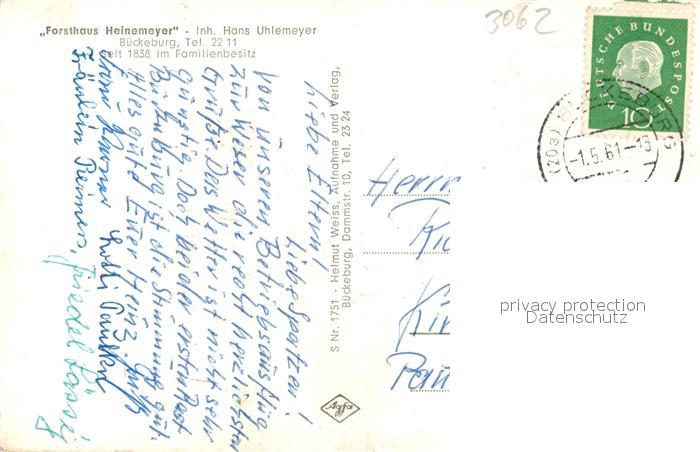 „Forsthaus Heinemeyer" - Inh. Hans Uhlemeyer
Bückeburg, Tel. 22 11
seit 1838 im Familienbesitz
3062
DEUTSCHE BUNDESPOST
10
(20a) BÜCKEBURG
-1.5.61-16
Liebe Eltern!
Liebe Spatzen!
Von unserem Betriebsausflug
zur Weser die recht herzlichsten
Grüße. Das Wetter ist nicht sehr
günstig. Doch bei der ersten Rast
Bückeburg ist die Stimmung gut.
Alles Gute Euer Heinz
Fräulein
Friedel
S Nr. 1751 - Helmut Weiss, Aufnahme und Verlag,
Bückeburg, Dammstr. 10, Tel. 23 24
Agfa
Herrn
privacy protection
Datenschutz